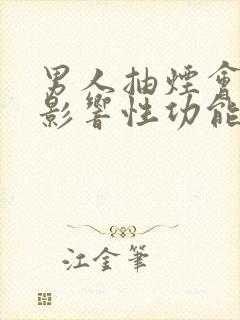 男人抽煙會
影響性功能
江金筆